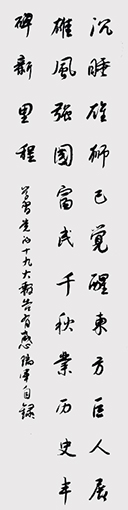 沉睡雄狮已觉醒東方巨人展
雄風强國富民千秋業历史丰
碑新里程
学习党的十九大报告有感